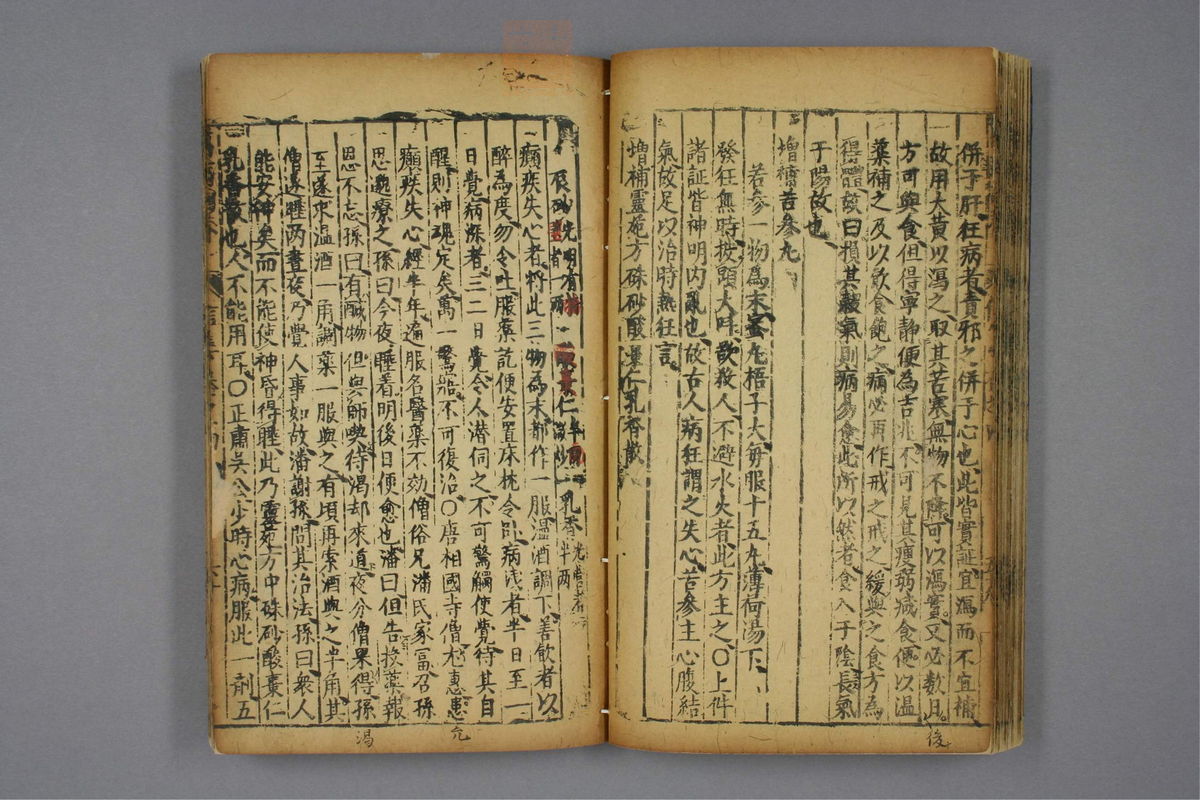 併于肝狂病者責邪之併于心也此皆實証宜瀉而不宜補
故用大黃以瀉之取其苦寒無物不降可以瀉實又必數日後
方可與食但得寧靜便為吉兆不可見其瘦弱減食便以温
藥補之及以飲食飽之病必再作戒之戒之緩與之食方為
得體故曰損其穀氣則病易愈此所以然者食入于陰長氣
于陽故也
增補苦參丸
苦參一物為末蜜丸梧子大每服十五丸薄荷湯下
發狂無時披頭大呌欲殺人不避水火者此方主之〇上件
諸証皆神明内亂也故古人病狂謂之失心苦參主心腹結
氣故足以治時熱狂言
增補靈苑方硃砂酸棗仁乳香散
辰砂光明有 者一兩 酸棗仁半兩微炒 乳香光瑩者半兩
癲疾失心者將此三物為末都作一服温酒調下善飲者以
醉為度勿令吐服藥訖便安置床枕令卧病淺者半日至一
日覺病深者三二日覺令人潜伺之不可驚觸使覺待其自
醒則神魂定矣萬一驚寤不可復治〇唐相國寺僧允惠患
癲疾失心經半年遍服名醫藥不効僧俗兄潘氏家富召孫
思邈療之孫曰今夜睡着明後日便愈也潘曰但告投藥報
恩不忘孫曰有醎物但與師喫待渴却來道夜分僧果得渴孫
至遂求温酒一角調藥一服與之有頃再索酒與之半角其
僧遂睡两晝夜乃覺人事如故潘謝孫問其治法孫曰衆人
能安神矣而不能使神昏得睡此乃靈苑方中硃砂酸棗仁
乳香散也人不能用耳〇正肅吳公少時心病服此一劑五